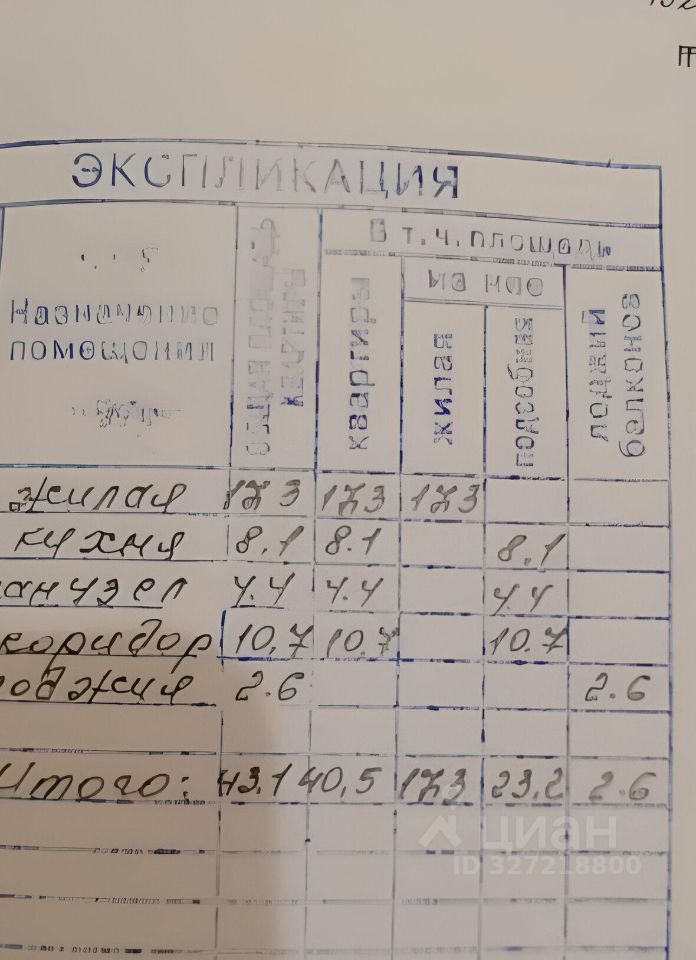 ЭКСПЛИКАЦИЯ
Назначение
помещения
общая площадь
квартиры
В т. ч. площадь
из нее
квартиры
жилая
подсобная
лоджий
балконов
жилая 17,3 17,3 17,3
кухня 8,1 8.1 8,1
анузел 4.4 4.4 4.4
коридор 10,7 10.7 10.7
оджия 2.6 2.6
Итого: 43,1 40,5 17,3 23,2 2.6
циан
ID 327218800